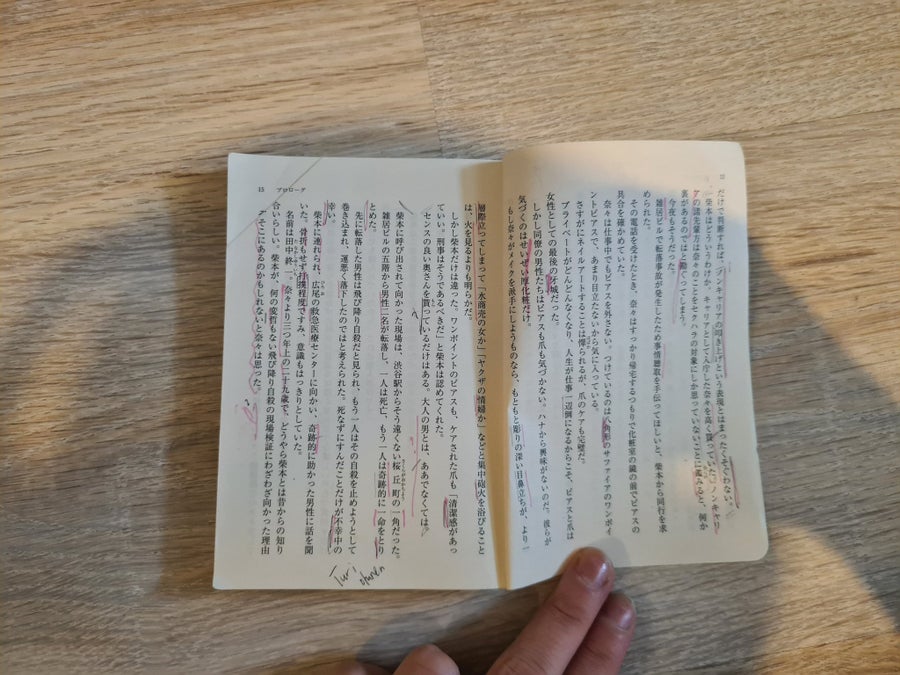 だけで判断すれば、ノンキャリアの叩き上げという表現とはまったくそぐわない。
柴本はどういうわけか、キャリアとして入庁した奈々を高く買っていた。ノンキャリ
アの諸先輩方は奈々のことをセクハラの対象にしか思っていないことに鑑みると、何か
裏があるのではと勘ぐってしまう。
今夜もそうだった。
雑居ビルで転落事故が発生したため事情聴取を手伝ってほしいと、柴本から同行を求
められた。
その電話を受けたとき、奈々はすっかり帰宅するつもりで化粧室の鏡の前でピアスの
具合を確かめていた。
奈々は仕事中でもピアスを外さない。つけているのは八角形のサファイアのワンポイ
ントピアスで、あまり目立たないから気に入っている。
さすがにネイルアートすることは憚られるが、爪のケアも完璧だ。
プライベートがどんどんなくなり、人生が仕事一辺倒になるからこそ、ピアスと爪は
女性としての最後の牙城だった。
しかし同僚の男性たちはピアスも爪も気づかない。ハナから興味がないのだ。彼らが
気づくのはせいぜい厚化粧だけ。
もし奈々がメイクを派手にしようものなら、もともと彫りの深い目鼻立ちが、より一
層際立ってしまって「水商売の女か」「ヤクザの情婦か」などと集中砲火を浴びること
は、火を見るよりも明らかだ。
しかし柴本だけは違った。ワンポイントのピアスも、ケアされた爪も「清潔感があっ
ていい。刑事はそうであるべきだ」と柴本は認めてくれた。
センスの良い奥さんを貰っているだけはある。大人の男とは、ああでなくては。
柴本に呼び出されて向かった現場は、渋谷駅からそう遠くない桜丘町の一角だった。
雑居ビルの五階から男性二名が転落し、一人は死亡、もう一人は奇跡的に一命をとり
とめた。
先に転落した男性は飛び降り自殺だと見られ、もう一人はその自殺を止めようとして
巻き込まれ、運悪く落下したのではと考えられた。死なずにすんだことだけが不幸中の
幸い。
柴本に連れられ、広尾の救急医療センターに向かい、奇跡的に助かった男性に話を聞
いた。骨折もせず打撲程度ですみ、意識もはっきりとしていた。
名前は田中終一。奈々より三つ年上の二十九歳で、どうやら柴本とは昔からの知り
合いらしい。柴本が、何の変哲もない飛び降り自殺の現場検証にわざわざ向かった理由
がそこにあるのかもしれないと奈々は思った。
15 プロローグ